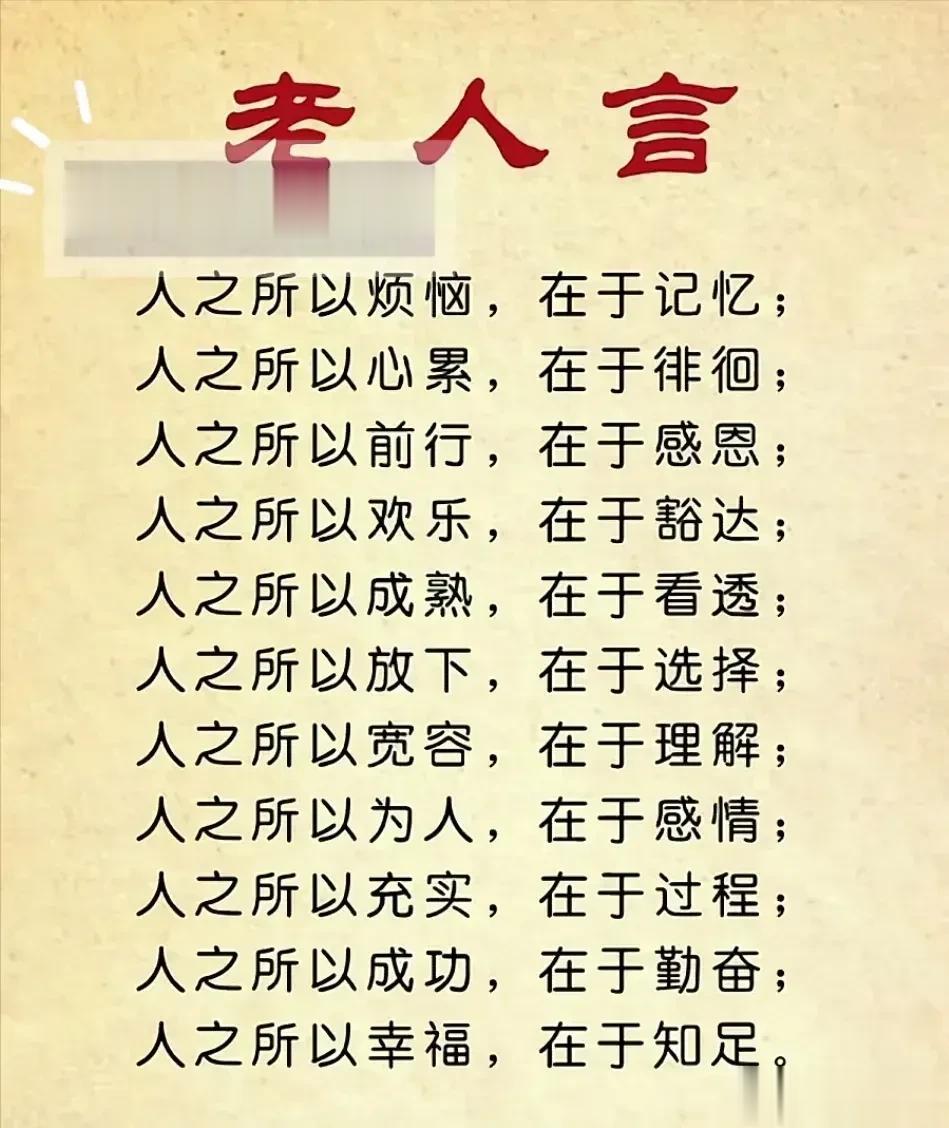 老人言
人之所以烦恼，在于记忆；
人之所以心累，在于徘徊；
人之所以前行，在于感恩；
人之所以欢乐，在于豁达；
人之所以成熟，在于看透；
人之所以放下，在于选择；
人之所以宽容，在于理解；
人之所以为人，在于感情；
人之所以充实，在于过程；
人之所以成功，在于勤奋；
人之所以幸福，在于知足。